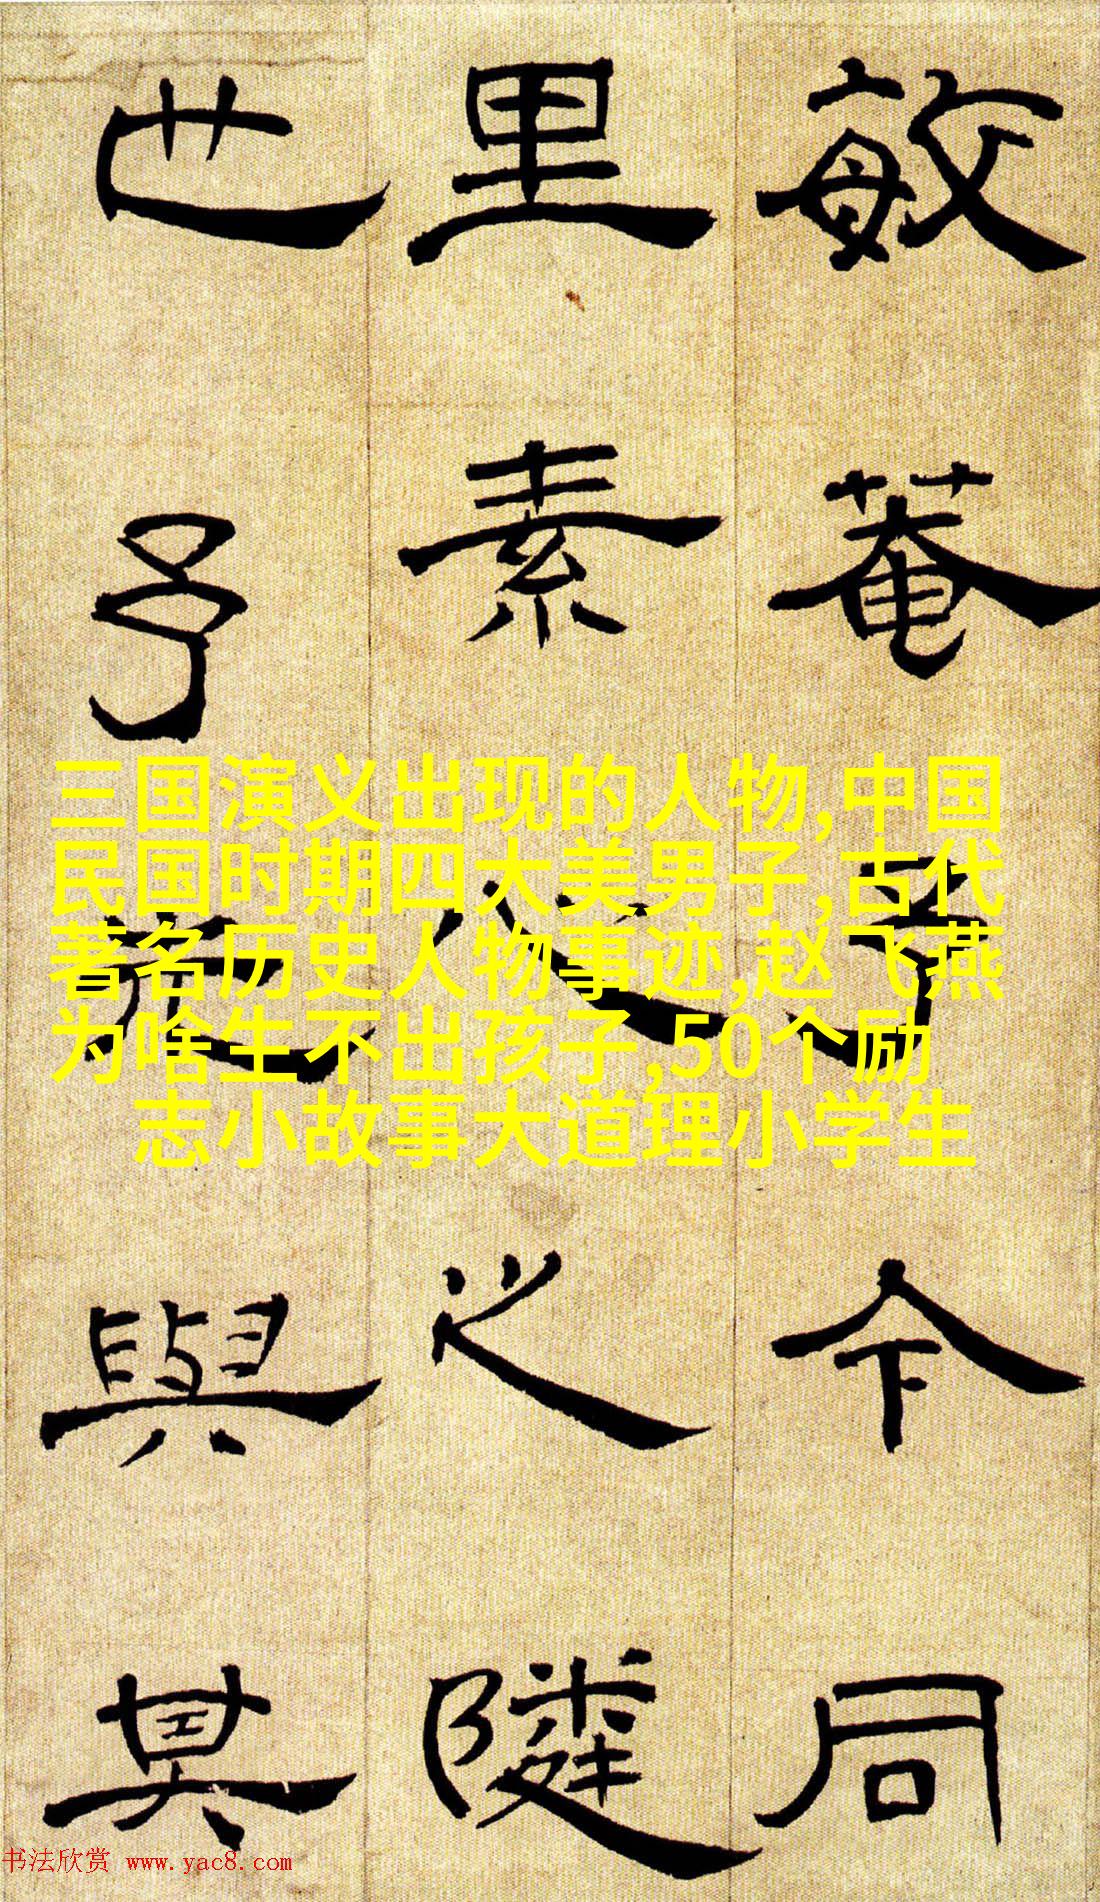 敏菴今同
里素之
世予與其
三国演义出现的人物,中国
民国时期四大美男子,古代
著名历史人物事迹,赵飞燕
为啥生不出孩子,50个励
志小故事大道理小学生
书法欣赏 www.yac8.com